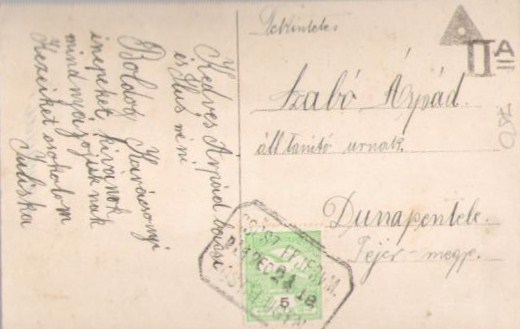 Kedves Árpád bácsi
és Ilus néni
Boldog Karácsonyi
ünepeket kivánok
mindnyájojuknak
Kezeiket csokolom
Juliska
Tekintetes
Szabó Árpád
áll. tanitó urnak.
Dunapentele.
Fejér-megye.
II A
5